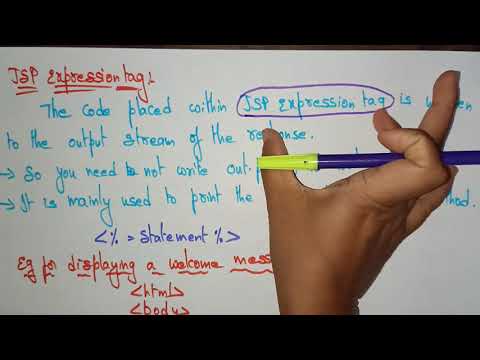 JSP Expression tag:
The code placed within JSP Expression tag is
to the output stream of the response.
→ So you need not write out.
→ It is mainly used to print the
<% = Statement %>
Eg for displaying a welcome
<html>
<body>